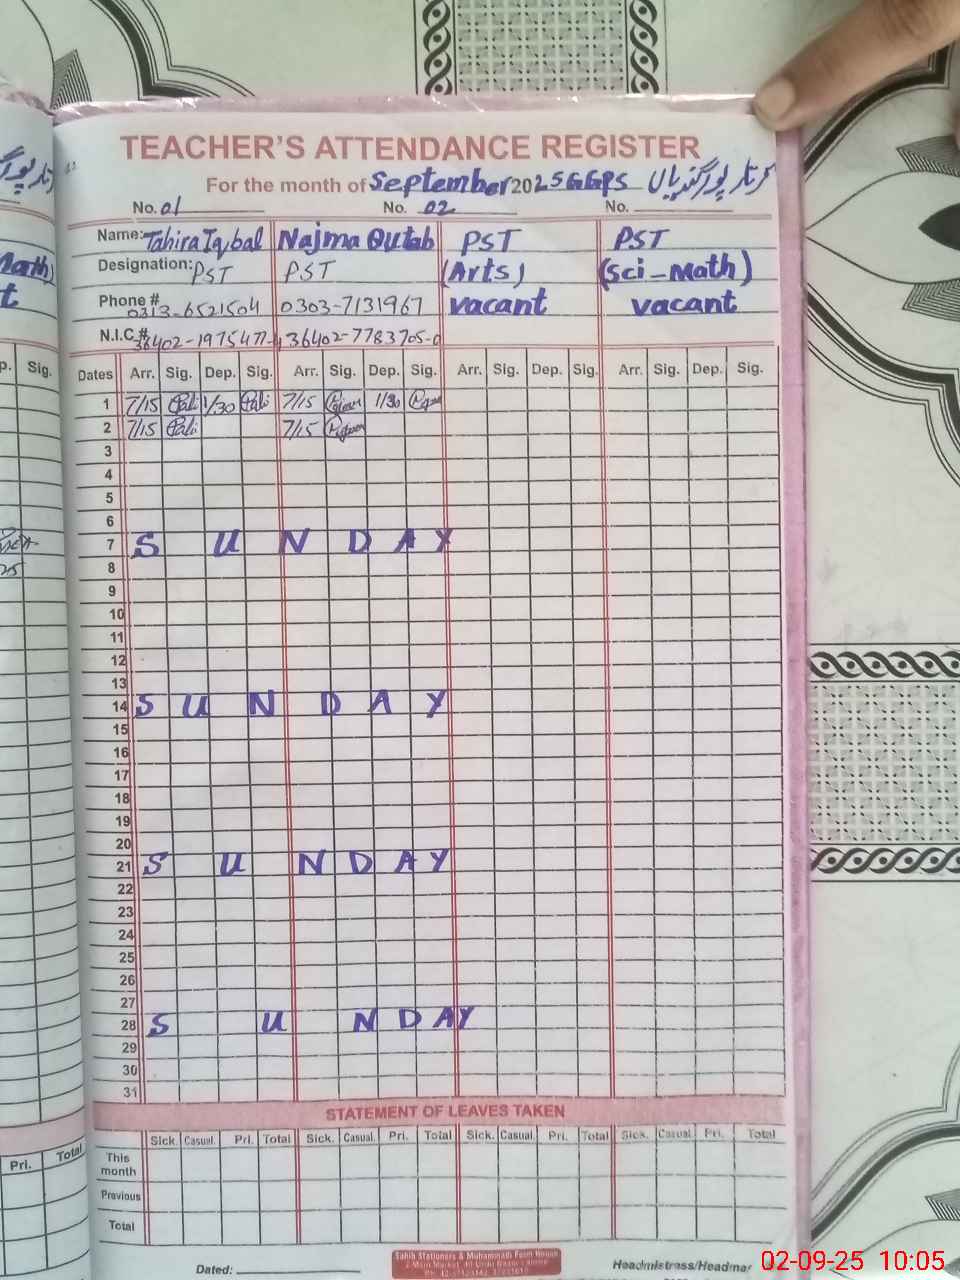 TEACHER'S ATTENDANCE REGISTER
For the month of September 2025 GGPS کرتار پور گندیاں
No. 01 No. 02 No.
Name: Tahira Iqbal Najma Qutab PST PST
Designation: PST PST (Arts) (Sci-Math)
Phone # 0313-6521504 0303-7131967 vacant vacant
N.I.C.# 36402-1975477-4 36402-7783705-0
Dates Arr. Sig. Dep. Sig. Arr. Sig. Dep. Sig. Arr. Sig. Dep. Sig. Arr. Sig. Dep. Sig.
1 7/15 1/30 7/15 1/30
2 7/15 7/15
3
4
5
6
7 SUNDAY
8
9
10
11
12
13
14 SUNDAY
15
16
17
18
19
20
21 SUNDAY
22
23
24
25
26
27
28 SUNDAY
29
30
31
STATEMENT OF LEAVES TAKEN
Sick. Casual. Pri. Total Sick. Casual. Pri. Total Sick. Casual. Pri. Total Sick. Casual. Pri. Total
This month
Previous
Total
Dated: Headmistress/Headmar
Sahib Stationers & Muhammadi Form House
Math)
t
p. Sig.
Pri. Total
02-09-25 10:05